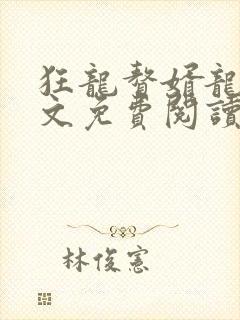 狂龍贅婿龍
文免費閱讀
林俊憲